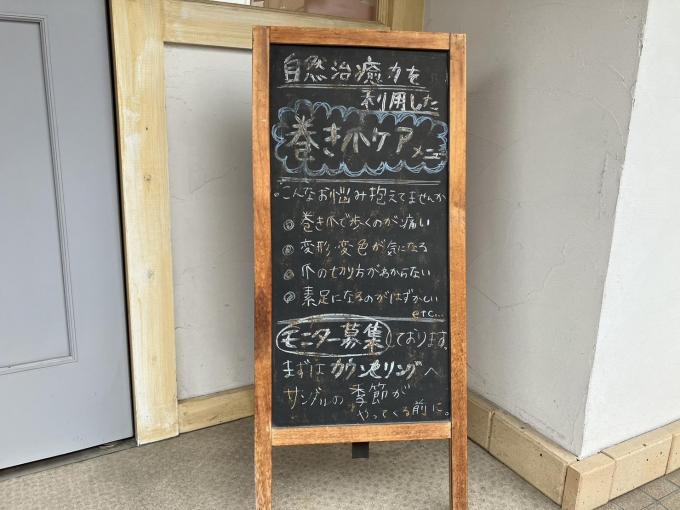 自然治癒力を
利用した
巻き爪ケアメニュー
こんなお悩み抱えてませんか
◎ 巻き爪で歩くのが痛い
◎ 変形・変色が気になる
◎ 爪の切り方がわからない
◎ 素足になるのがはずかしい
etc...
モニター募集しております。
まずはカウンセリングへ
サンダルの季節が
やってくる前に。